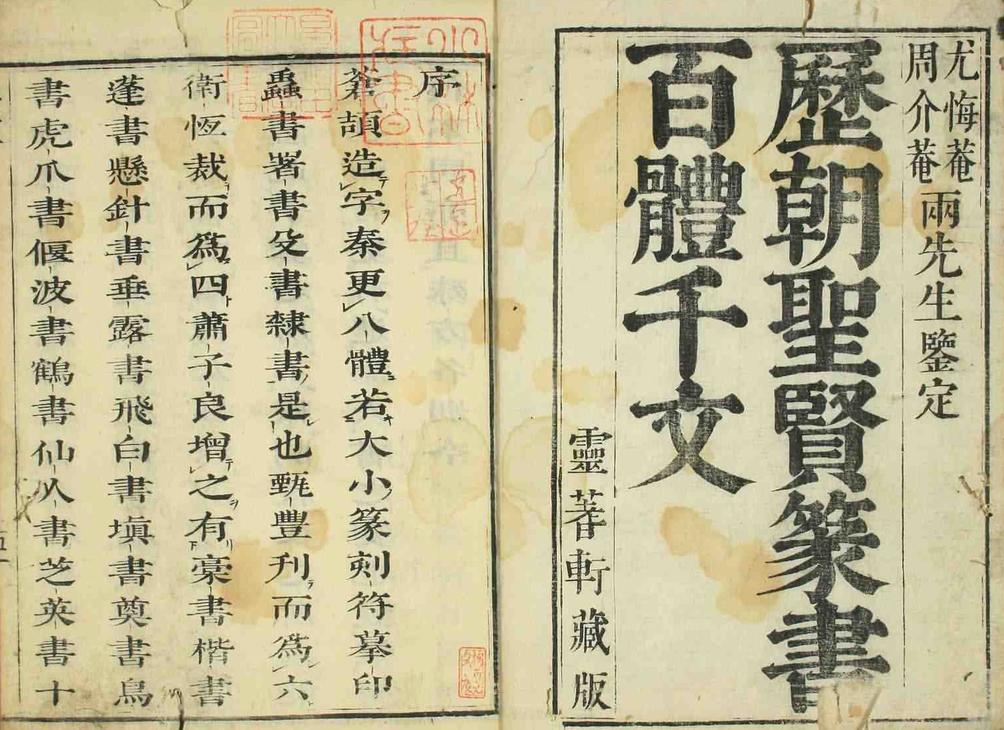 尤悔菴
周介菴
兩先生鑒定
歷朝聖賢篆書
百體千文
靈蓍軒藏版
序
蒼頡造字秦更八體若大小篆刻符摹印
蟲書署書殳書隸書是也甄豐刋而為六
衛恆裁而為四蕭子良增之有藁書楷書
蓬書懸針書垂露書飛白書塡書奠書鳥
書虎爪書偃波書鶴書仙人書芝英書十